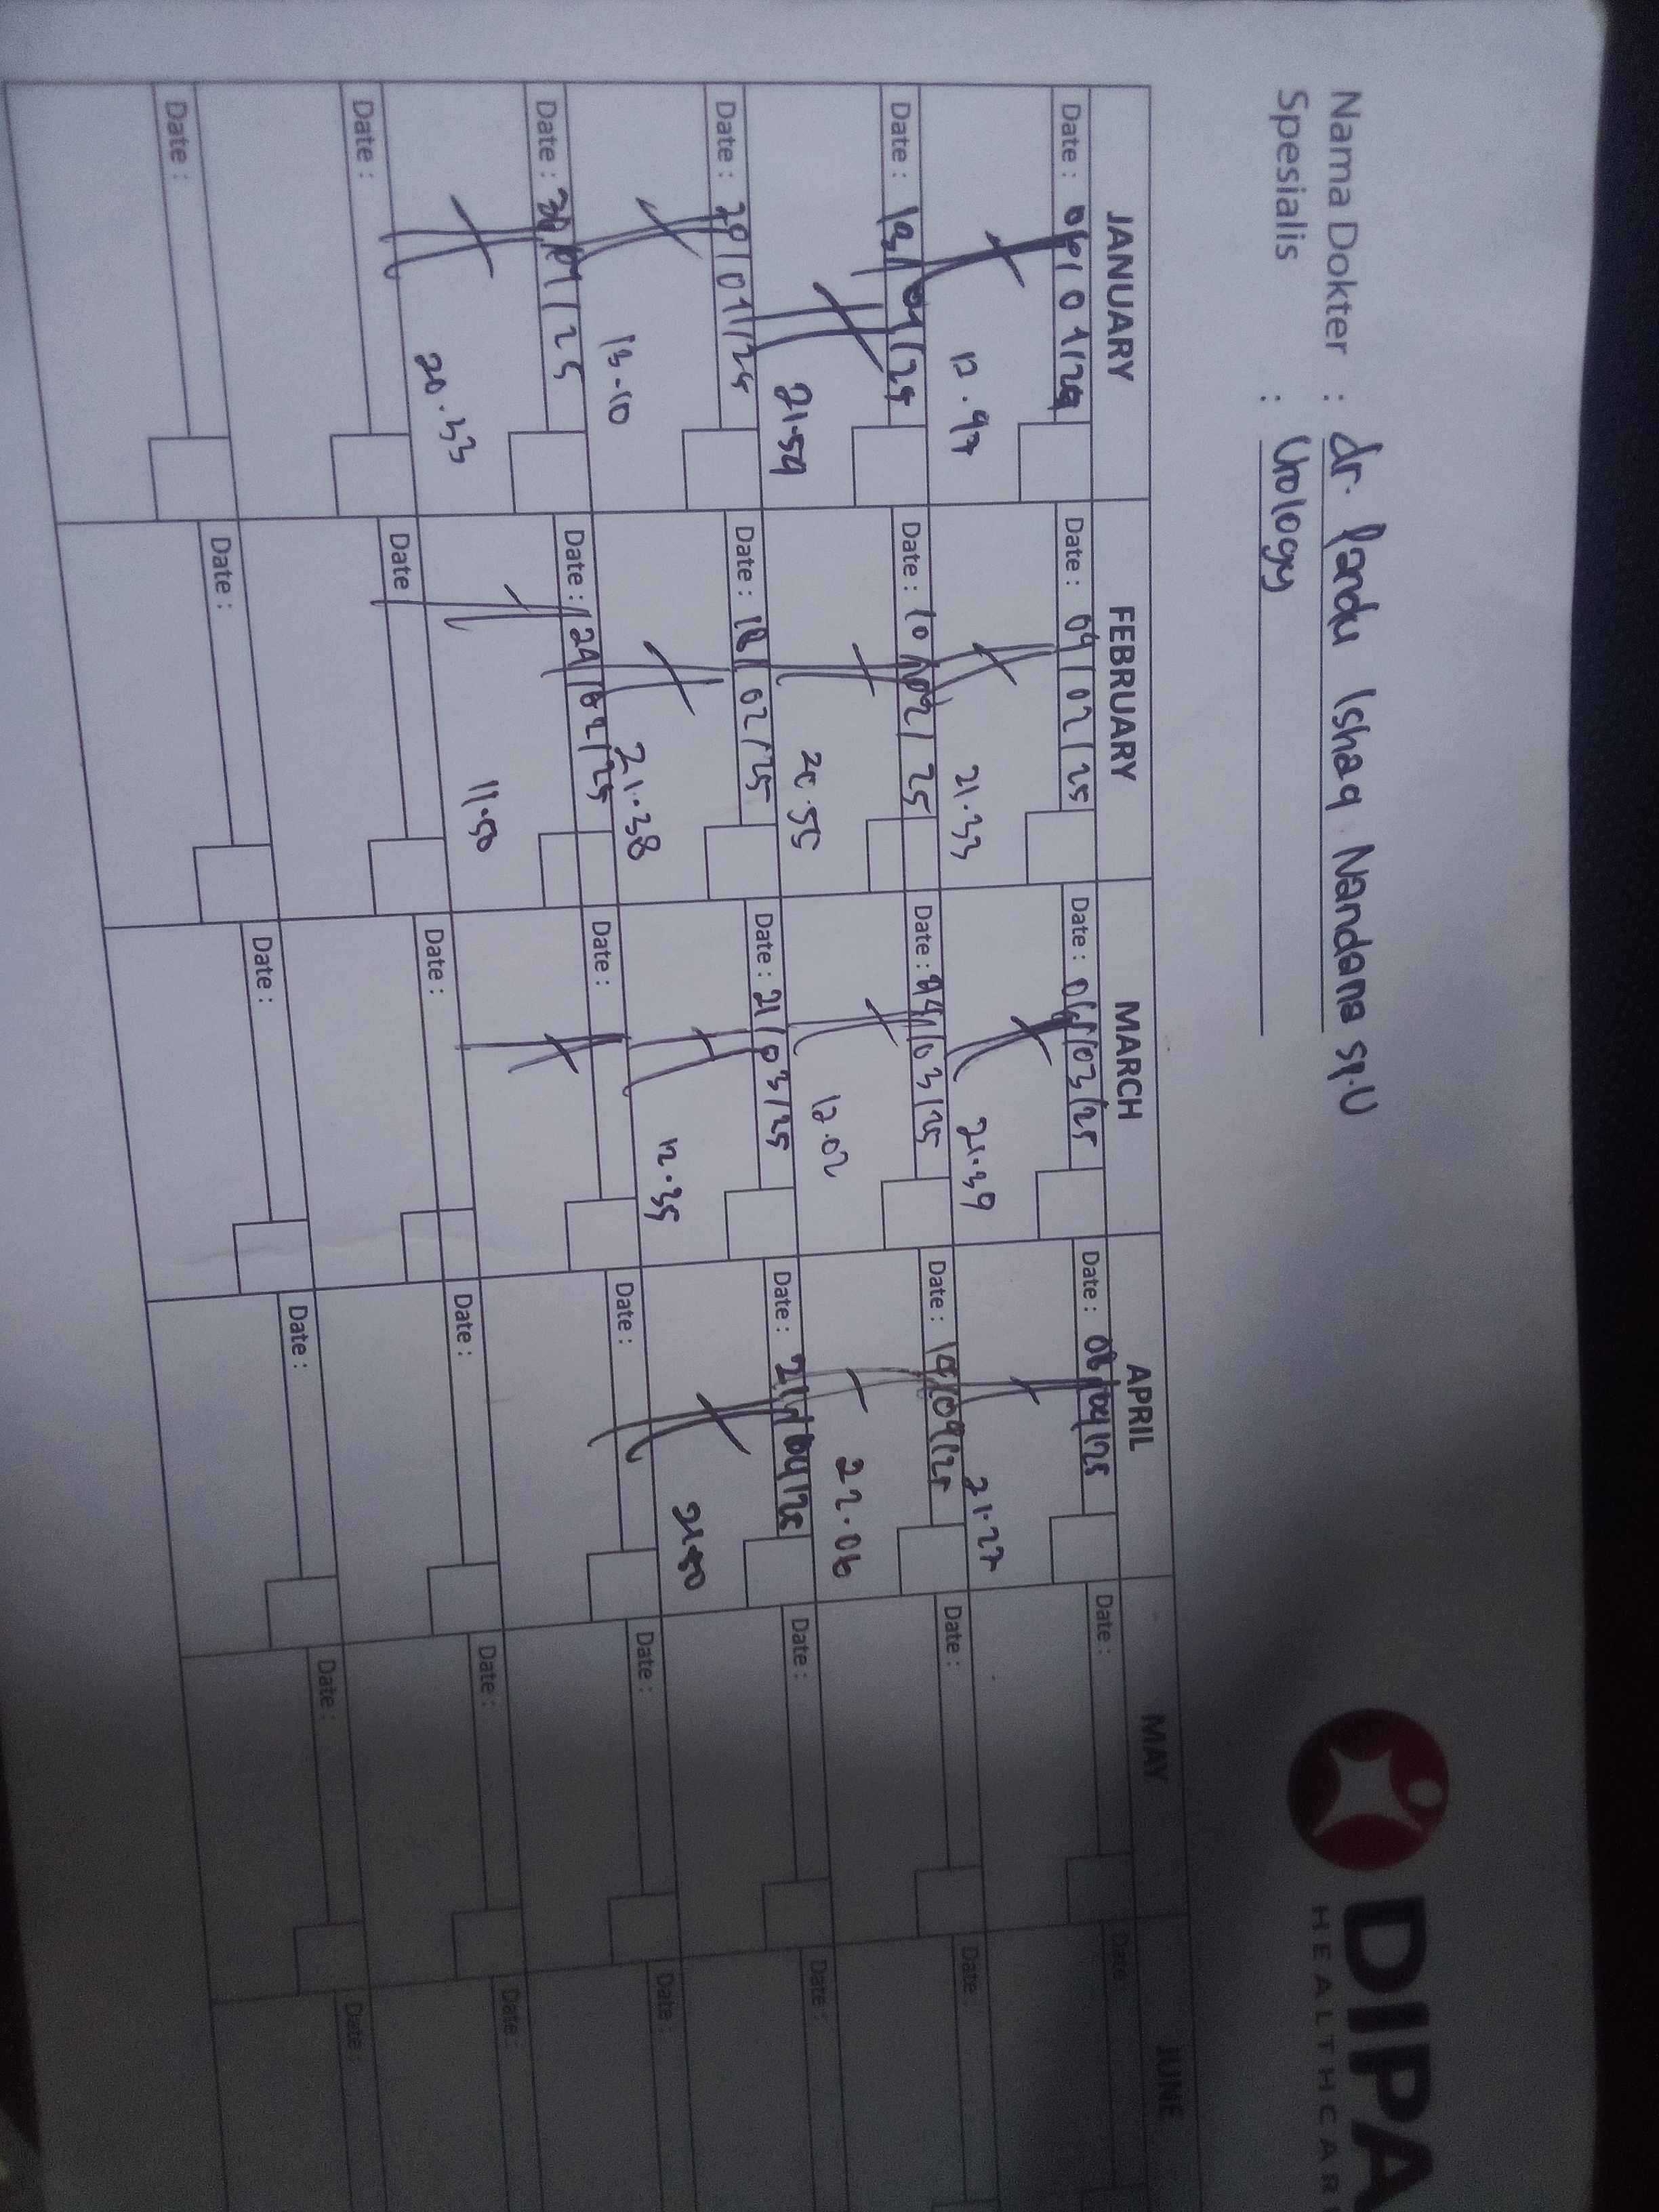 DIPA
HEALTHCAR
Nama Dokter : dr. Pandu Ishaq Nandana Sp.U
Spesialis : Urology
JANUARY FEBRUARY MARCH APRIL MAY JUNE
Date : 06/01/25 Date : 04/02/25 Date : 04/03/25 Date : 08/04/25 Date : Date
12.47 21.33 21.39 21.27
Date : 13/01/25 Date : 10/02/25 Date : 14/03/25 Date : 14/04/25 Date : Date :
21.54 20.55 12.02 22.06
Date : 20/01/25 Date : 18/02/25 Date : 21/03/25 Date : 21/04/25 Date : Date :
13.10 21.38 12.35 21.50
Date : 30/01/25 Date : 24/02/25 Date : Date : Date : Date :
20.33 11.50
Date : Date Date : Date : Date : Date :
Date : Date : Date : Date : Date : Date :